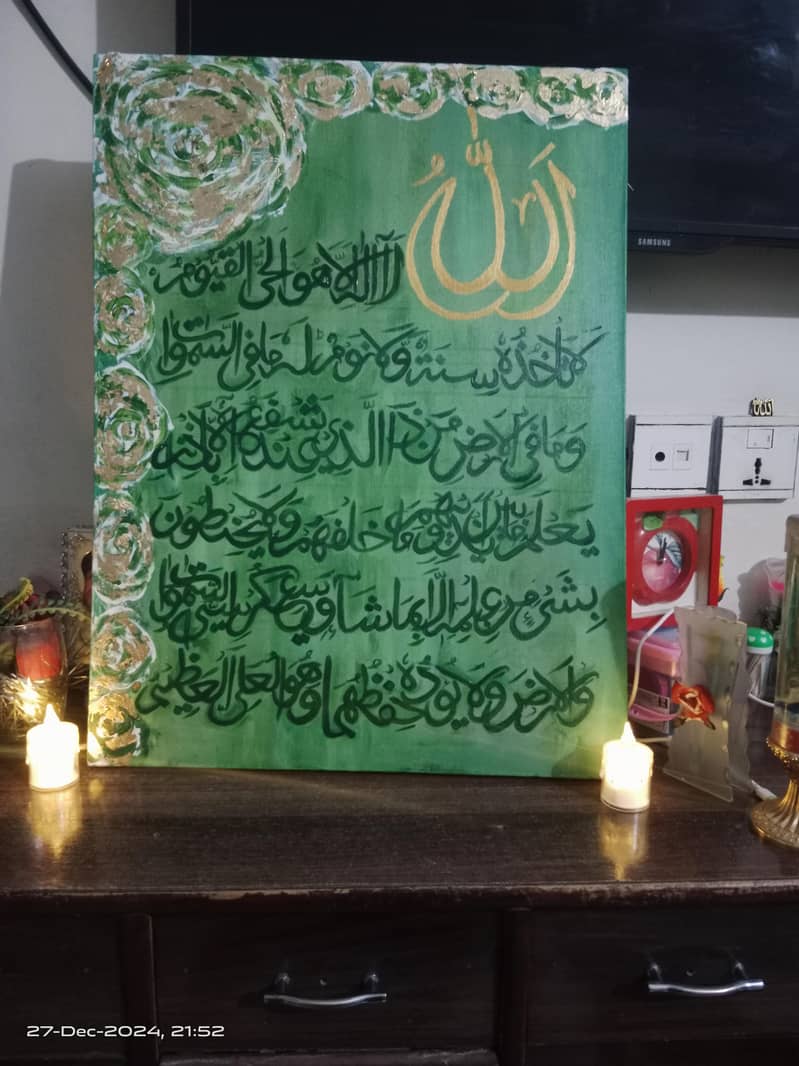 الله
لا اله الا هو الحي القيوم
لا تاخذه سنة ولا نوم له ما في السموات
وما في الارض من ذا الذي يشفع عنده الا باذنه
يعلم ما بين ايديهم وما خلفهم ولا يحيطون
بشيء من علمه الا بما شاء وسع كرسيه السموات
والارض ولا يوده حفظهما وهو العلي العظيم
SAMSUNG
الله
27-Dec-2024, 21:52